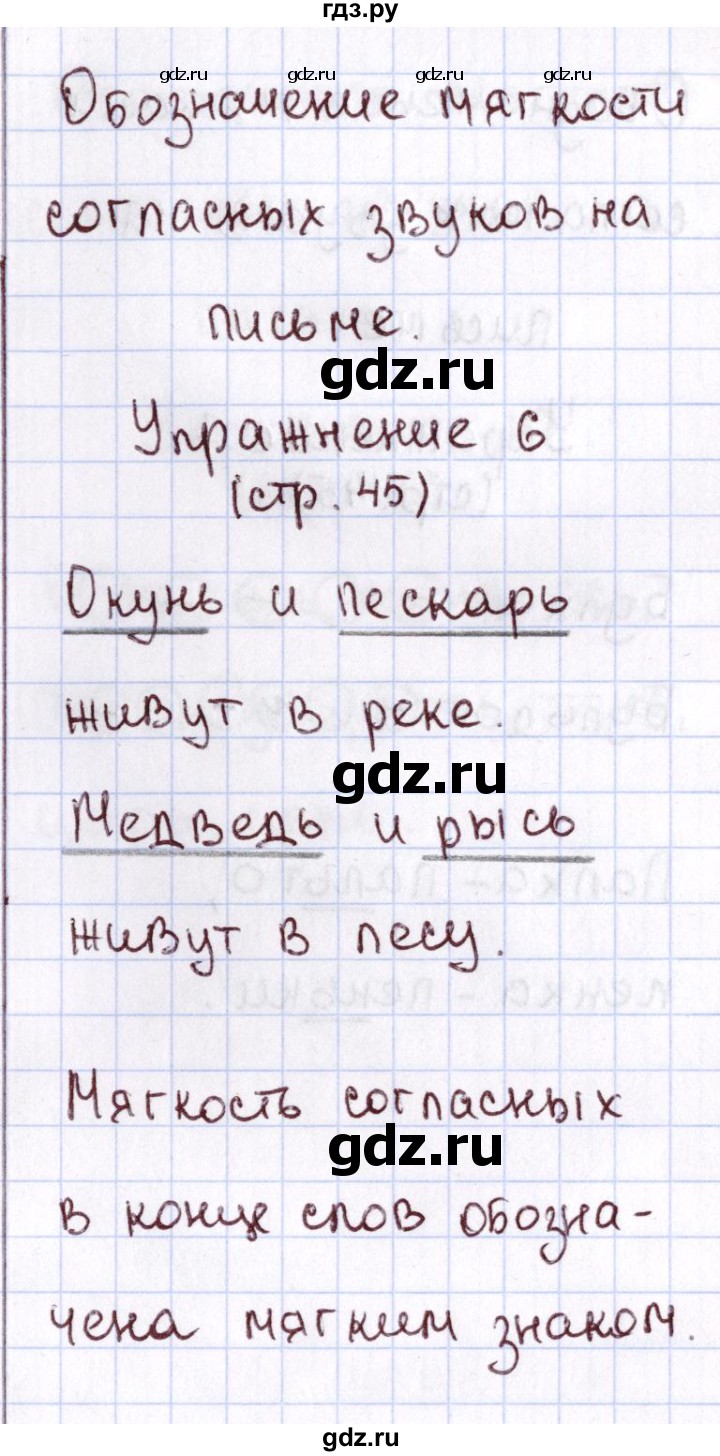 гдз.ру
gdz.ru gdz.ru gdz.ru gdz.ru
Обозначение мягкости
согласных звуков на
письме.
gdz.ru
Упражнение 6
(стр. 45)
Окунь и пескарь
живут в реке.
gdz.ru
Медведь и рысь
живут в лесу.
Мягкость согласных
gdz.ru
в конце слов обозна-
чена мягким знаком.
gdz.ru